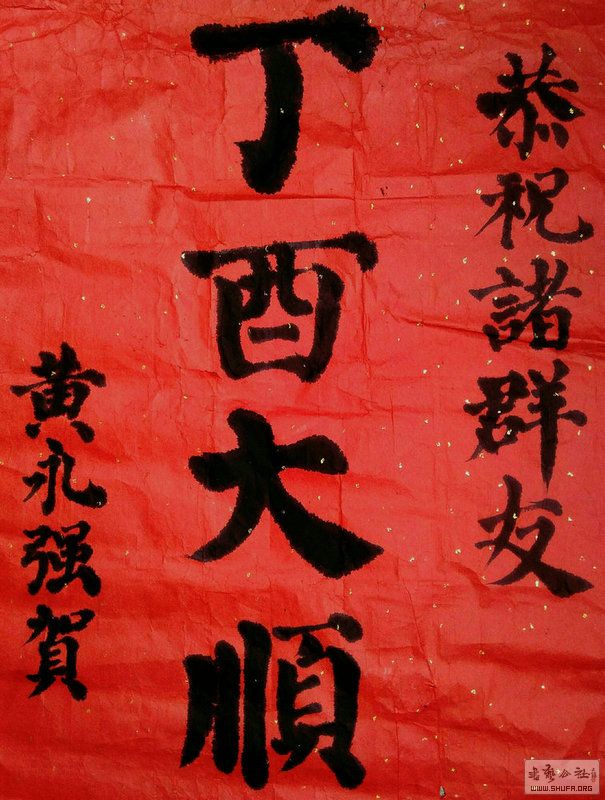 恭祝諸群友
丁酉大順
黄永强賀
书艺公社
WWW.SHUFA.ORG